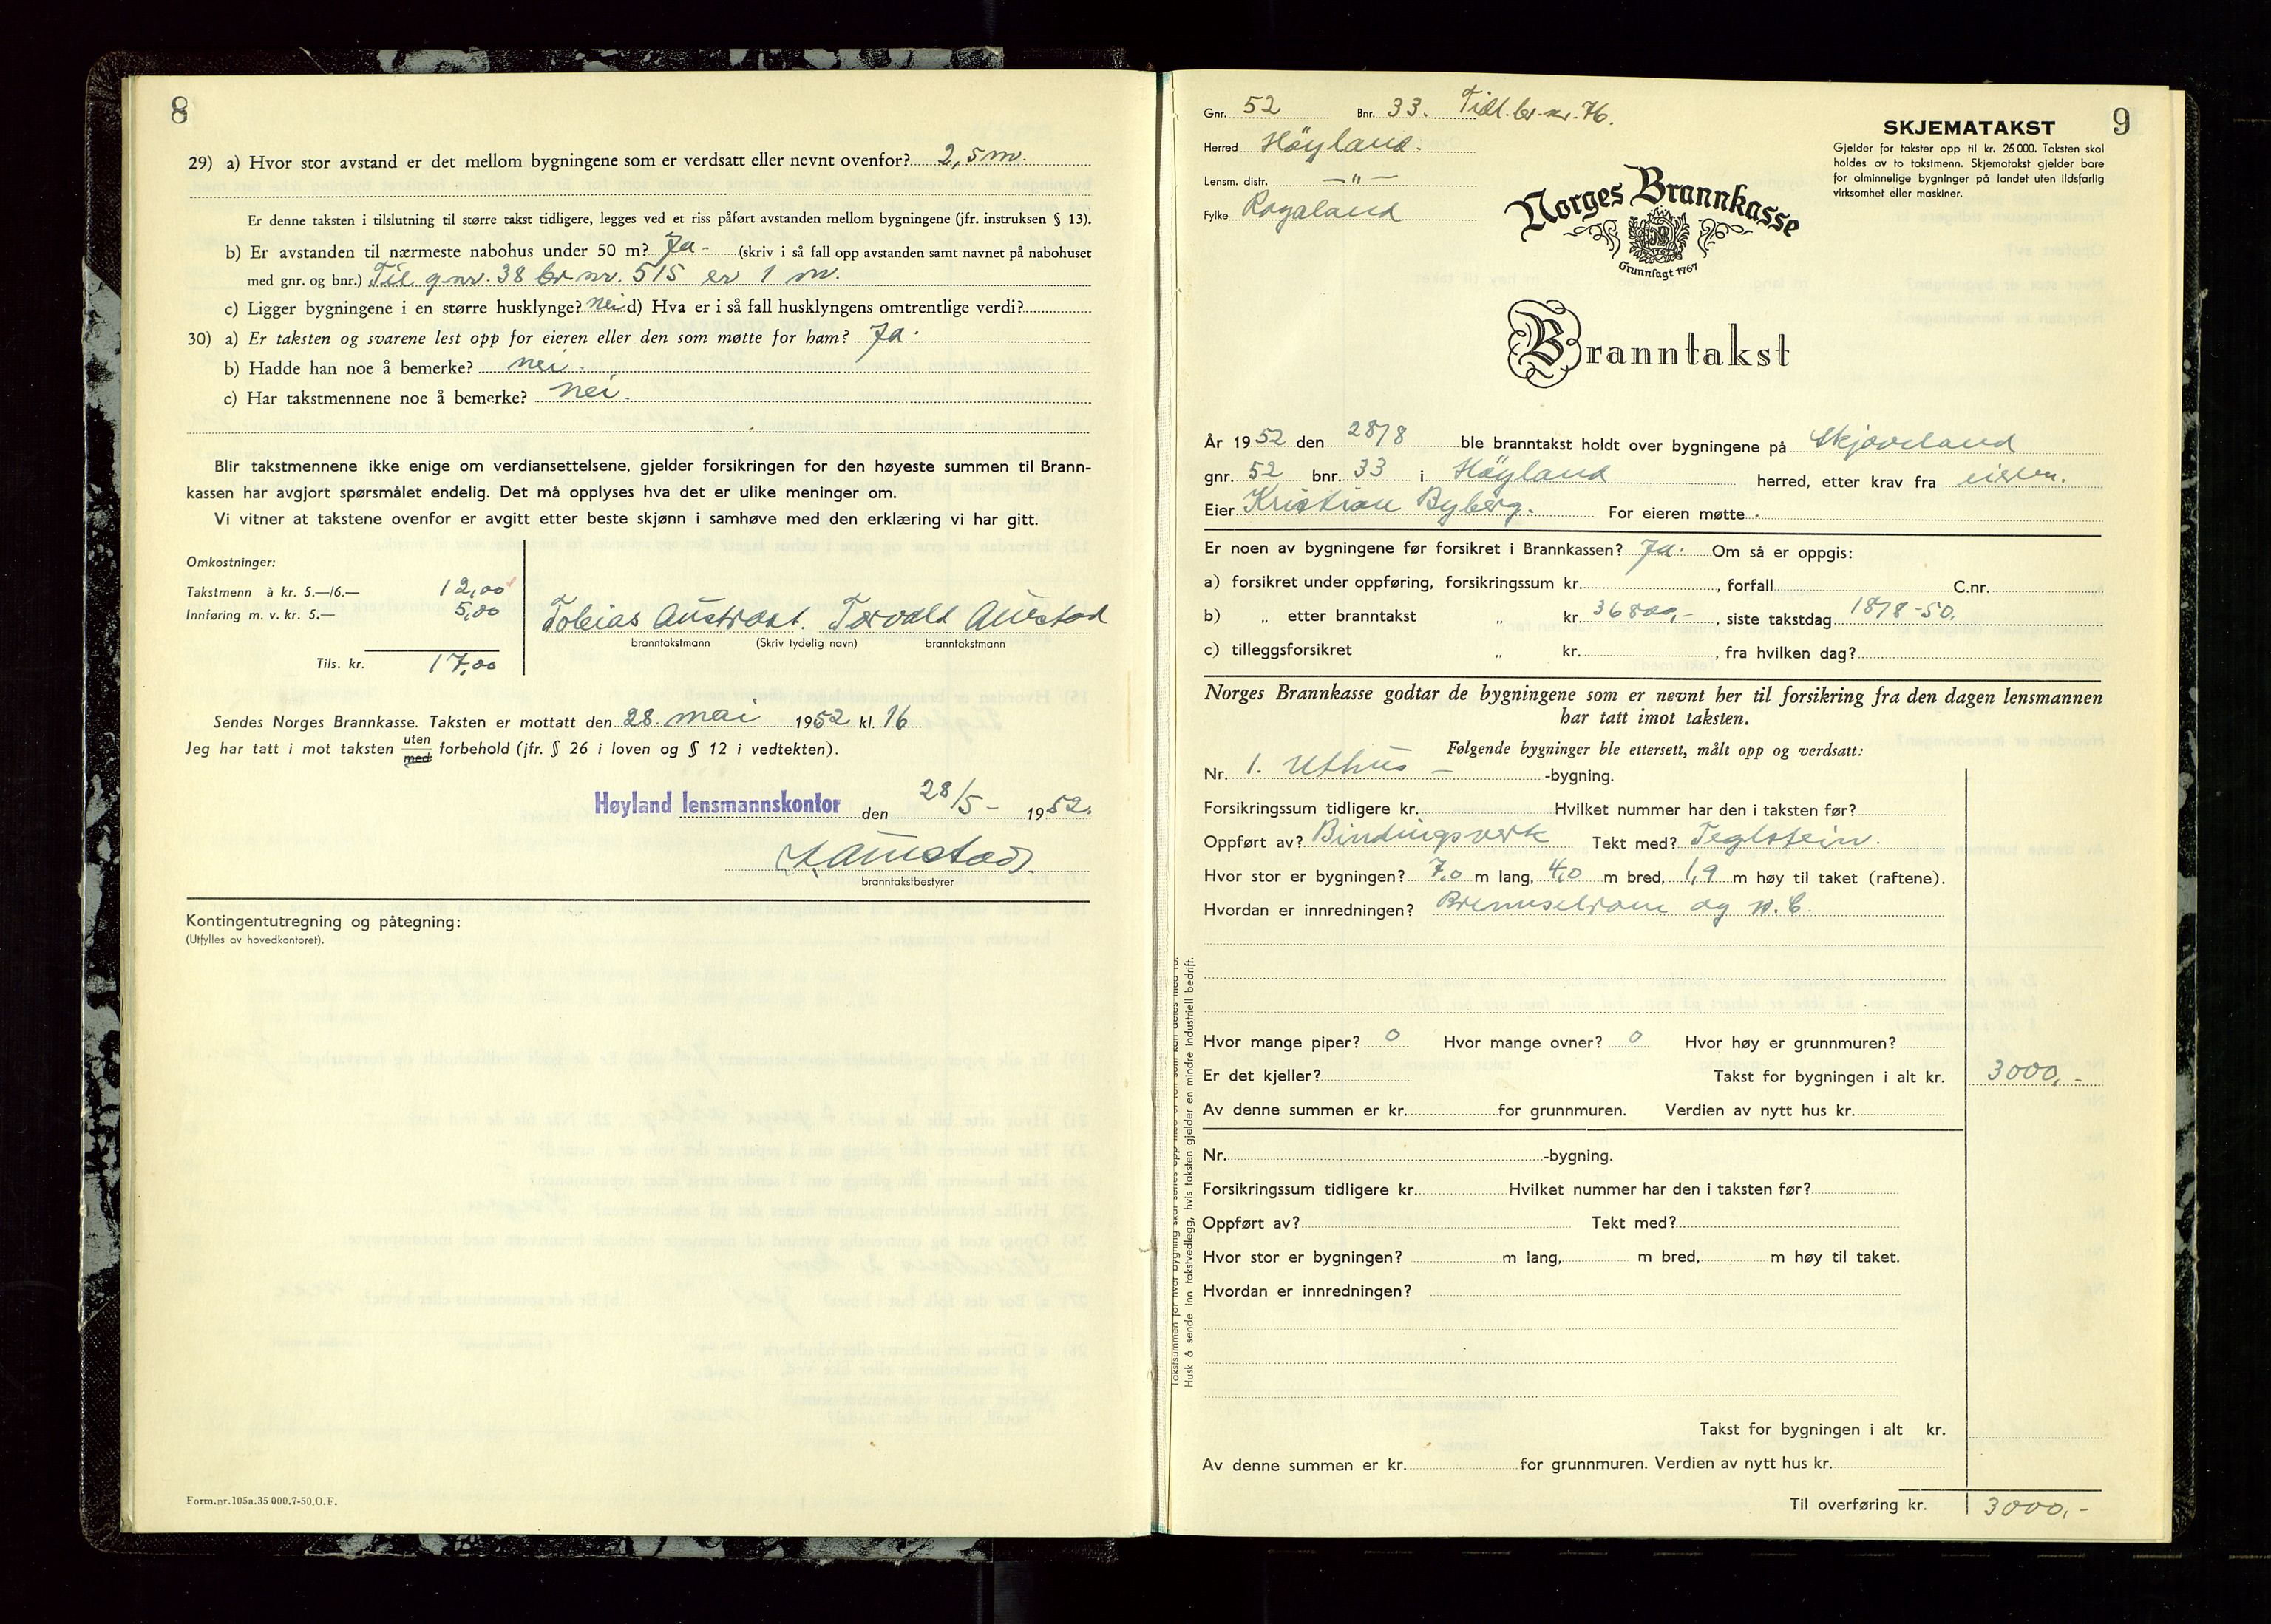 8
29) a) Hvor stor avstand er det mellom bygningene som er verdsatt eller nevnt ovenfor? 2,5 m.
Er denne taksten i tilslutning til større takst tidligere, legges ved et riss påført avstanden mellom bygningene (jfr. instruksen § 13).
b) Er avstanden til nærmeste nabohus under 50 m? Ja - (skriv i så fall opp avstanden samt navnet på nabohuset
med gnr. og bnr.) Til gnr. 38 br.nr. 515 er 1 m.
c) Ligger bygningene i en større husklynge? nei d) Hva er i så fall husklyngens omtrentlige verdi?
30) a) Er taksten og svarene lest opp for eieren eller den som møtte for ham? Ja.
b) Hadde han noe å bemerke? nei.
c) Har takstmennene noe å bemerke? nei.
Blir takstmennene ikke enige om verdiansettelsene, gjelder forsikringen for den høyeste summen til Brann-
kassen har avgjort spørsmålet endelig. Det må opplyses hva det er ulike meninger om.
Vi vitner at takstene ovenfor er avgitt etter beste skjønn i samhøve med den erklæring vi har gitt.
Omkostninger:
Takstmenn à kr. 5.—/6.— 12,00
Innføring m. v. kr. 5.— 5,00
Tils. kr. 17,00
Tobias Torvald Austad
branntakstmann (Skriv tydelig navn) branntakstmann
Sendes Norges Brannkasse. Taksten er mottatt den 28. mai 1952 kl. 16
Jeg har tatt i mot taksten uten med forbehold (jfr. § 26 i loven og § 12 i vedtekten).
Høyland lensmannskontor den 28/5 - 1952.
branntakstbestyrer
Kontingentutregning og påtegning:
(Utfylles av hovedkontoret).
Form.nr.105a.35 000.7-50.O.F.
9
Gnr. 52 Bnr. 33. Tidl. br.nr. 76.
Herred Høyland.
Lensm. distr. —"—
Fylke Rogaland
SKJEMATAKST
Gjelder for takster opp til kr. 25 000. Taksten skal
holdes av to takstmenn. Skjematakst gjelder bare
for alminnelige bygninger på landet uten ildsfarlig
virksomhet eller maskiner.
Norges Brannkasse
Grunnlagt 1767
Branntakst
År 1952 den 28/8 ble branntakst holdt over bygningene på Skjæveland
gnr. 52 bnr. 33 i Høyland herred, etter krav fra eieren.
Eier Kristian Byberg. For eieren møtte .
Er noen av bygningene før forsikret i Brannkassen? Ja. Om så er oppgis:
a) forsikret under oppføring, forsikringssum kr. , forfall C.nr.
b) „ etter branntakst „ kr. 36800,- , siste takstdag 18/8-50.
c) tilleggsforsikret „ kr. , fra hvilken dag?
Norges Brannkasse godtar de bygningene som er nevnt her til forsikring fra den dagen lensmannen
har tatt imot taksten.
Følgende bygninger ble ettersett, målt opp og verdsatt:
Nr. 1. Uthus — -bygning.
Forsikringssum tidligere kr. Hvilket nummer har den i taksten før?
Oppført av? Bindingsverk Tekt med? Teglstein.
Hvor stor er bygningen? 7,0 m lang, 4,0 m bred, 1,9 m høy til taket (raftene).
Hvordan er innredningen? Brenselrom og W.C.
Hvor mange piper? 0 Hvor mange ovner? 0 Hvor høy er grunnmuren?
Er det kjeller? Takst for bygningen i alt kr. 3000,-
Av denne summen er kr. for grunnmuren. Verdien av nytt hus kr.
Nr. -bygning.
Forsikringssum tidligere kr. Hvilket nummer har den i taksten før?
Oppført av? Tekt med?
Hvor stor er bygningen? m lang, m bred, m høy til taket.
Hvordan er innredningen?
Takst for bygningen i alt kr.
Av denne summen er kr. for grunnmuren. Verdien av nytt hus kr.
Til overføring kr. 3000,-
Husk å sende inn takstvedlegg, hvis taksten gjelder en mindre industriell bedrift.